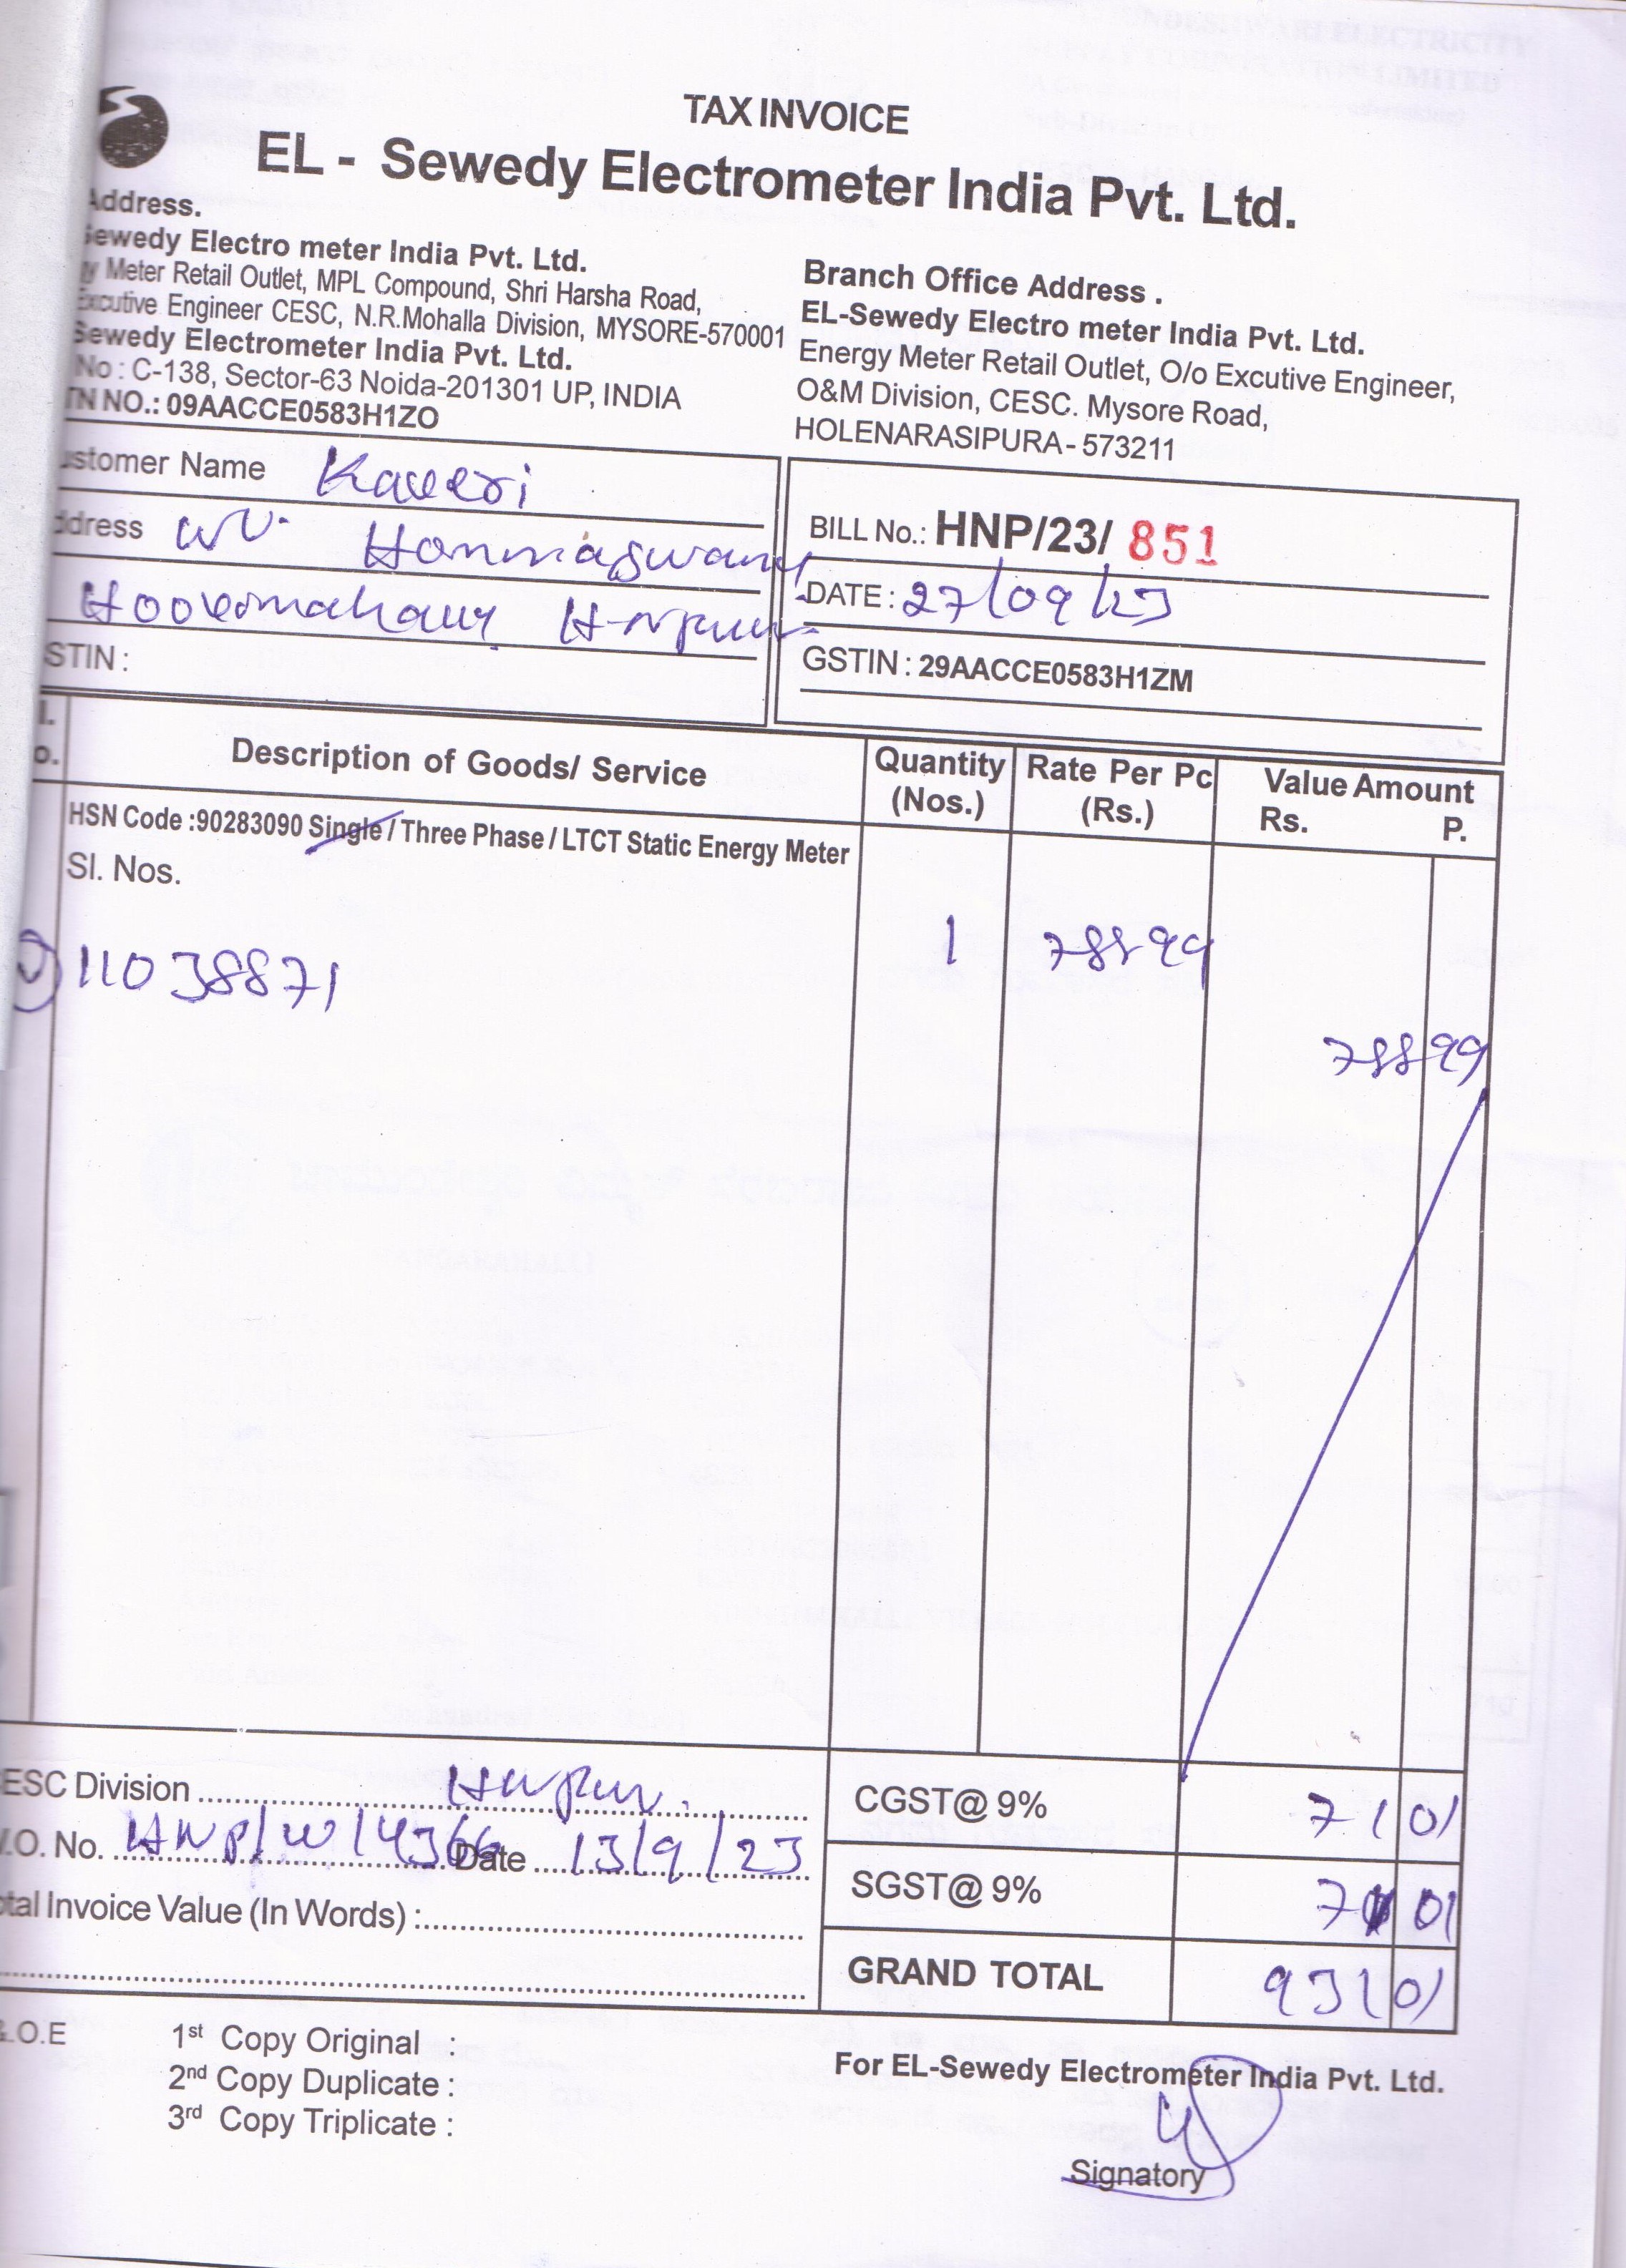 TAX INVOICE
EL - Sewedy Electrometer India Pvt. Ltd.
Address.
Sewedy Electro meter India Pvt. Ltd.
Meter Retail Outlet, MPL Compound, Shri Harsha Road,
Excutive Engineer CESC, N.R.Mohalla Division, MYSORE-570001
Sewedy Electrometer India Pvt. Ltd.
No : C-138, Sector-63 Noida-201301 UP, INDIA
TN NO.: 09AACCE0583H1ZO
Branch Office Address .
EL-Sewedy Electro meter India Pvt. Ltd.
Energy Meter Retail Outlet, O/o Excutive Engineer,
O&M Division, CESC. Mysore Road,
HOLENARASIPURA - 573211
ustomer Name Kaveri
ddress
STIN :
BILL No.: HNP/23/ 851
DATE : 27/09/23
GSTIN : 29AACCE0583H1ZM
l. o. Description of Goods/ Service Quantity (Nos.) Rate Per Pc (Rs.) Value Amount Rs. P.
HSN Code :90283090 Single / Three Phase / LTCT Static Energy Meter
Sl. Nos.
11038871 1 78899
788 99
ESC Division
.O. No. HNP/W/4366 Date 13/9/23
tal Invoice Value (In Words) :
CGST@ 9% 71 01
SGST@ 9% 71 01
GRAND TOTAL 931 01
.O.E
1st Copy Original :
2nd Copy Duplicate :
3rd Copy Triplicate :
For EL-Sewedy Electrometer India Pvt. Ltd.
Signatory